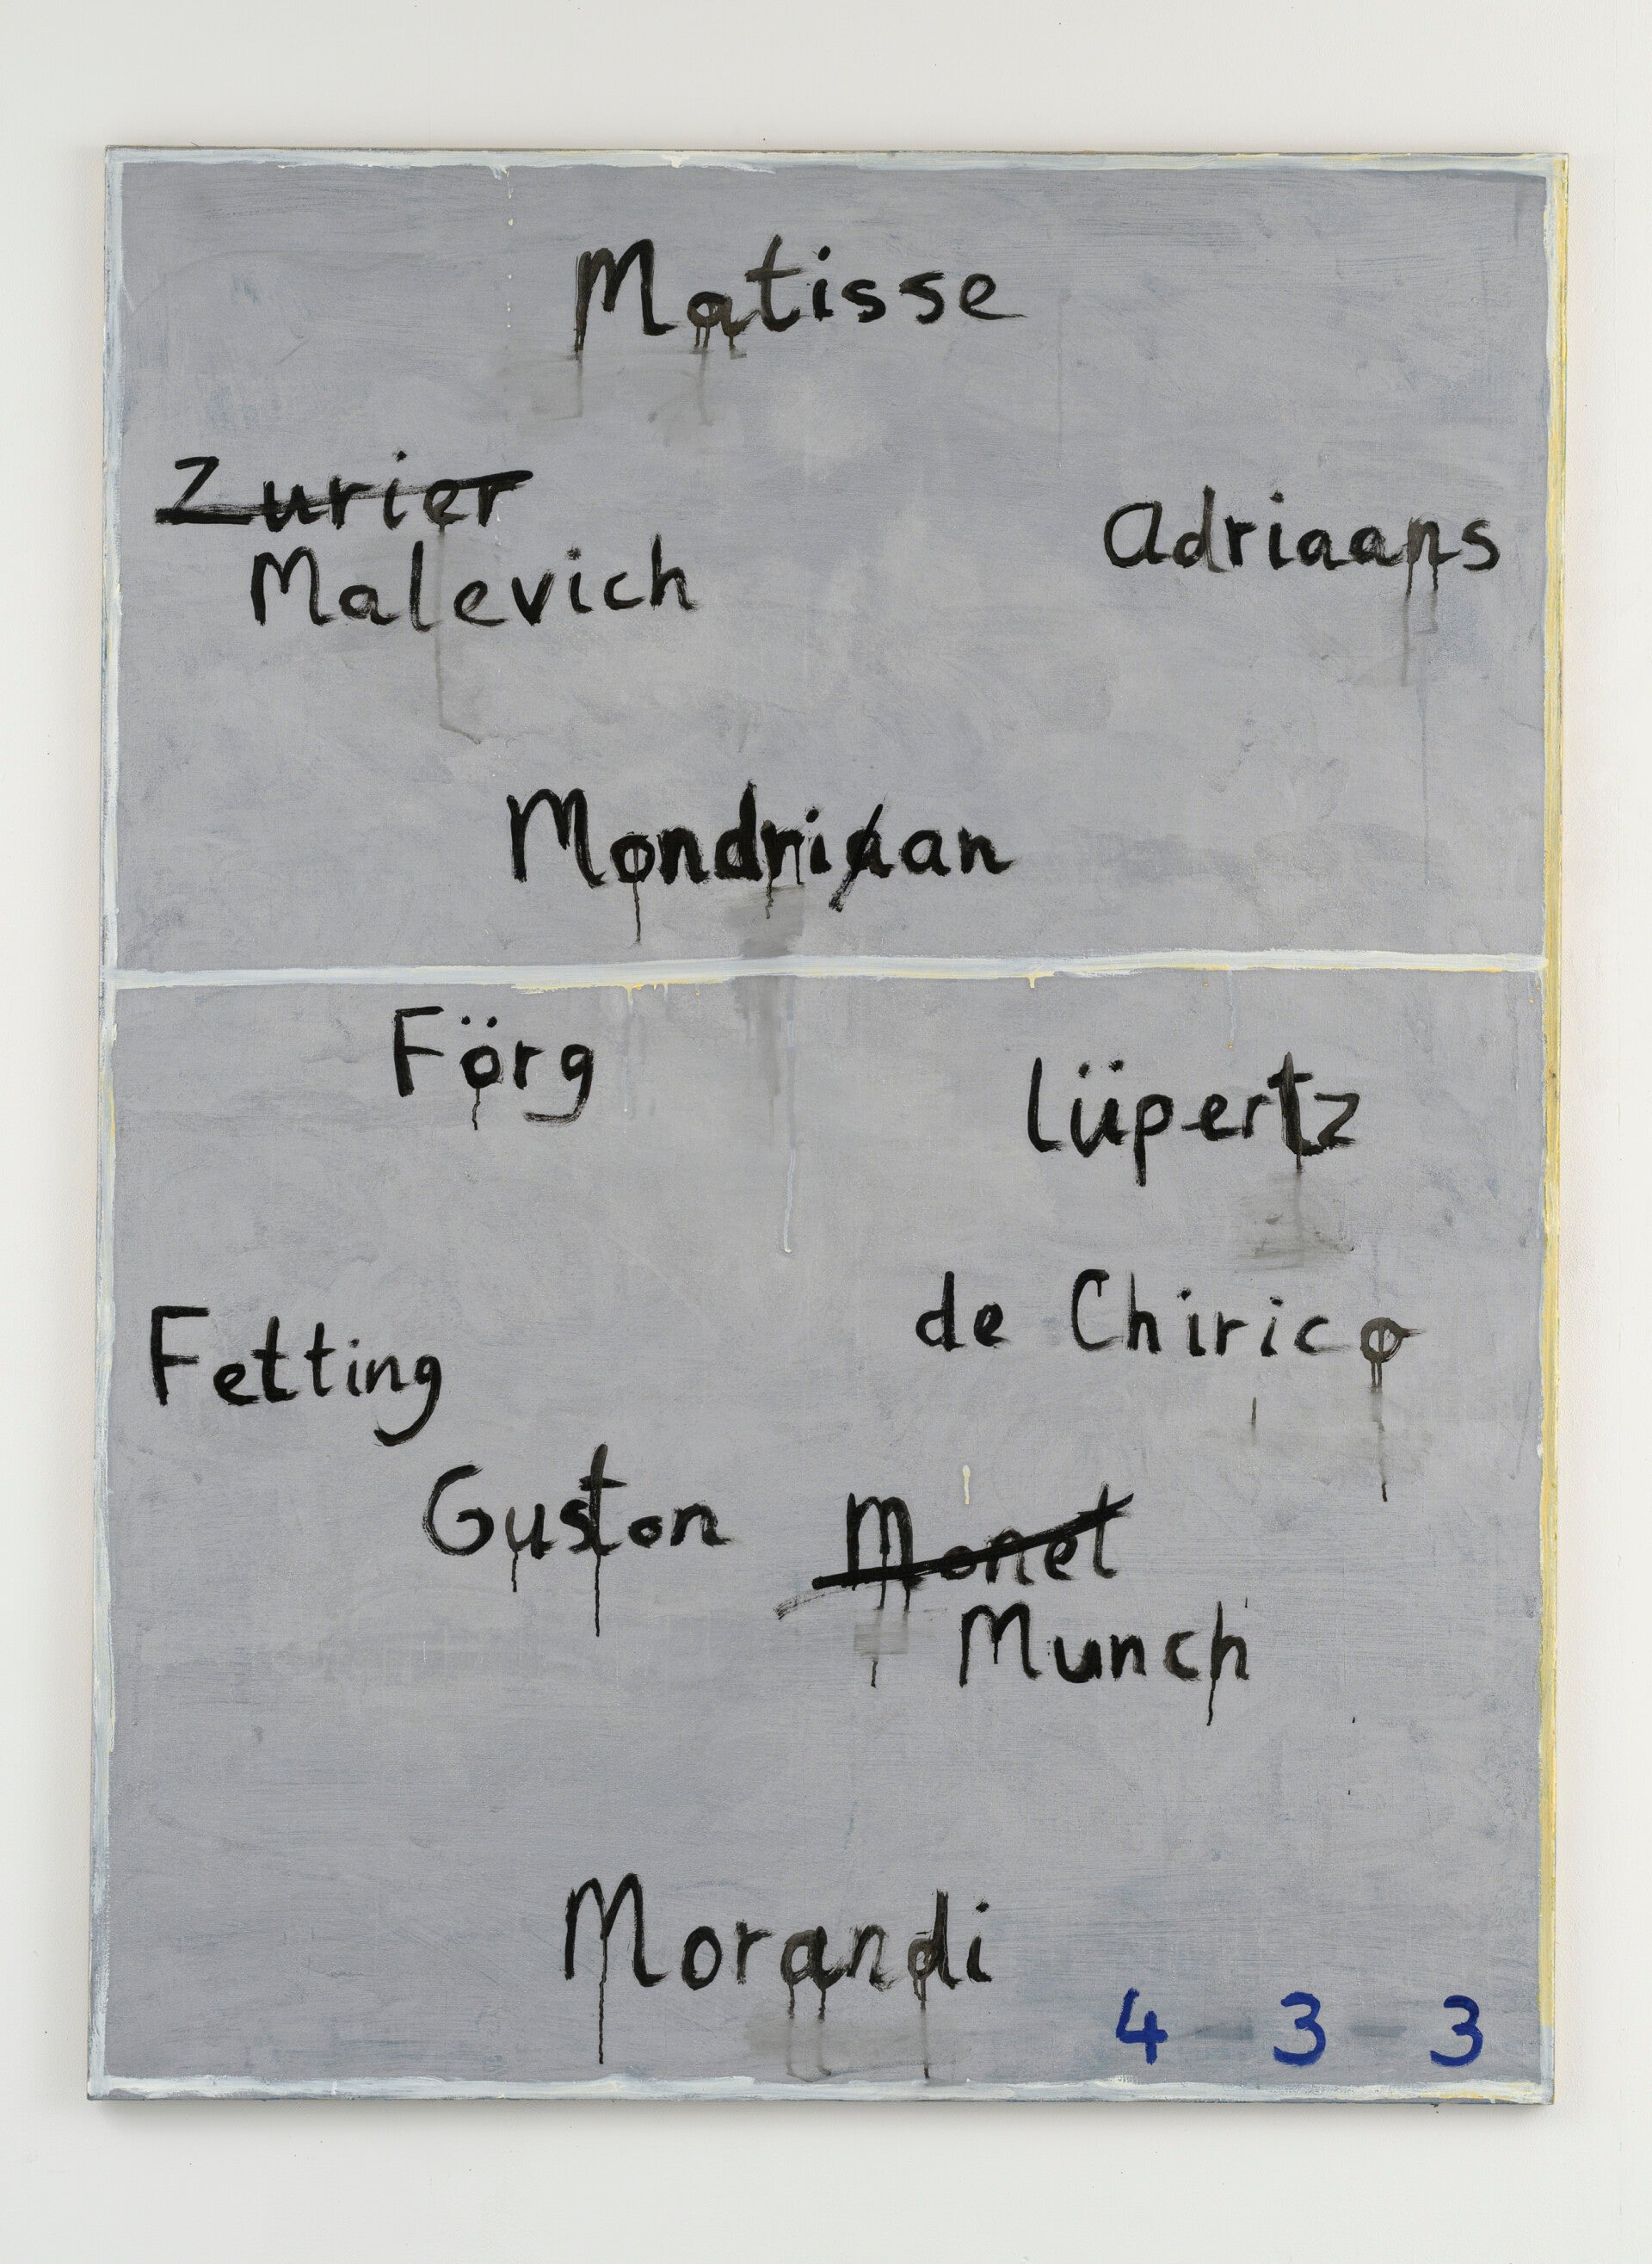 Matisse
Zurier
Adriaans
Malevich
Mondriaan
Förg
lüpertz
de Chirico
Fetting
Guston
Monet
Munch
Morandi
4 - 3 - 3